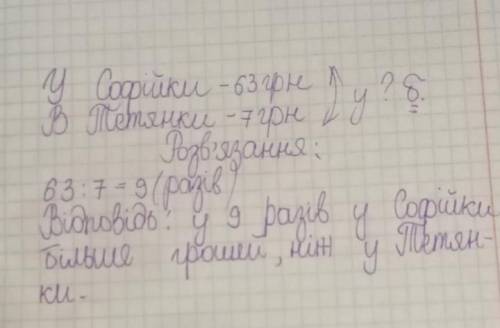 У Софійки - 63 грн
В Тетянки - 7 грн
у ? б.
Розв'язання:
63 : 7 = 9 (разів)
Відповідь: у 9 разів у Софійки
більше грошей, ніж у Тетян-
ки.